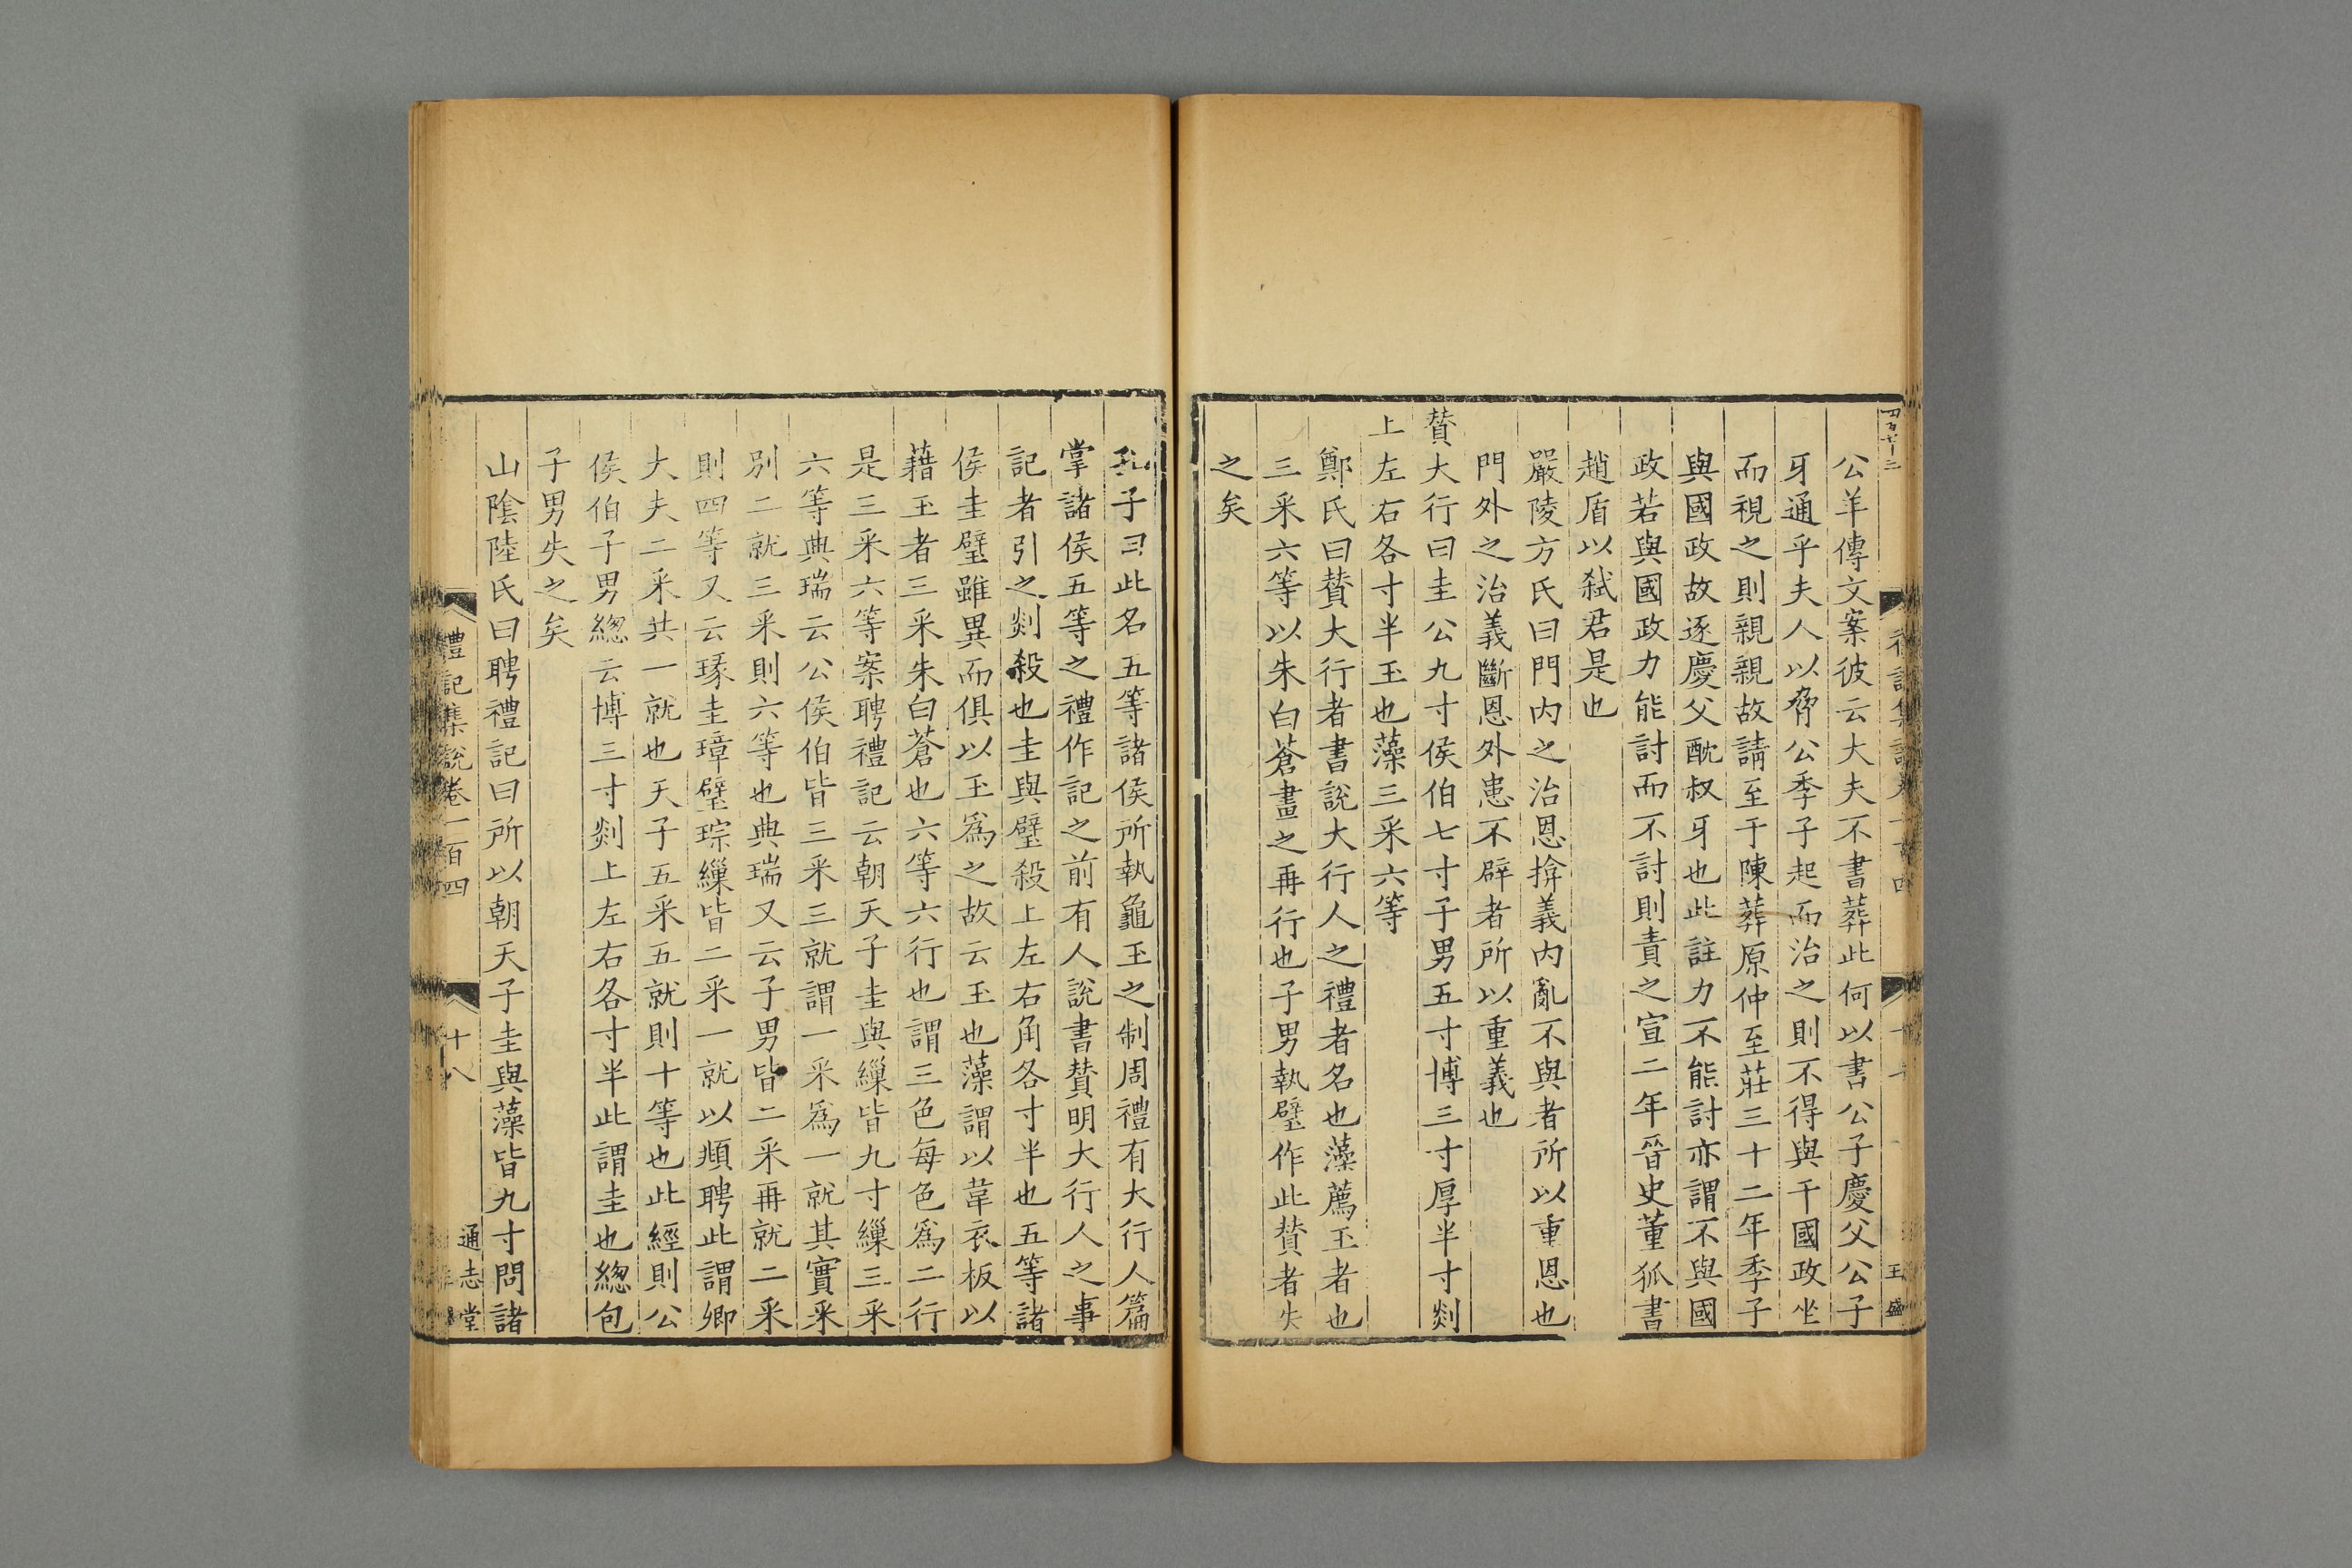 公羊傳文案彼云大夫不書葬此何以書公子慶父公子
牙通乎夫人以脅公季子起而治之則不得與于國政坐
而視之則親親故請至于陳葬原仲至莊三十二年季子
與國政故逐慶父酖叔牙也此註力不能討亦謂不與國
政若與國政力能討而不討則責之宣二年晉史董狐書
趙盾以弑君是也
嚴陵方氏曰門内之治恩揜義内亂不與者所以重恩也
門外之治義斷恩外患不辟者所以重義也
贊大行曰圭公九寸侯伯七寸子男五寸博三寸厚半寸剡
上左右各寸半玉也藻三采六等
鄭氏曰贊大行者書說大行人之禮者名也藻薦玉者也
三采六等以朱白蒼畫之再行也子男執璧作此贊者失
之矣
孔子曰此名五等諸侯所執龜玉之制周禮有大行人篇
掌諸侯五等之禮作記之前有人說書贊明大行人之事
記者引之剡殺也圭與璧殺上左右角各寸半也五等諸
侯圭璧雖異而俱以玉爲之故云玉也藻謂以韋衣板以
藉玉者三采朱白蒼也六等六行也謂三色每色爲二行
是三采六等案聘禮記云朝天子圭與繅皆九寸繅三采
六等典瑞云公侯伯皆三采三就謂一采爲一就其實采
別二就三采則六等也典瑞又云子男皆二采再就二采
則四等又云瑑圭璋璧琮繅皆二采一就以頫聘此謂卿
大夫二采共一就也天子五采五就則十等也此經則公
侯伯子男緫云博三寸剡上左右各寸半此謂圭也緫包
子男失之矣
山陰陸氏曰聘禮記曰所以朝天子圭與藻皆九寸問諸
禮記集說卷一百四
十八
通志堂